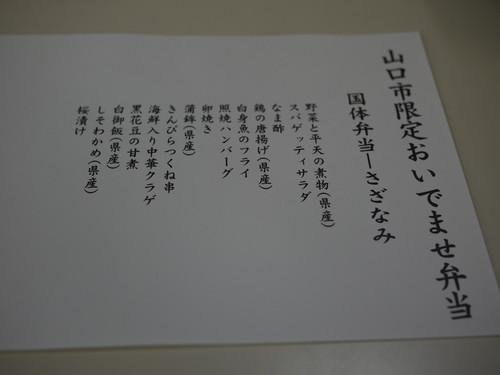 山口市限定おいでませ弁当
国体弁当ーさざなみ
野菜と平天の煮物(県産)
スパゲッティサラダ
なま酢
鶏の唐揚げ(県産)
白身魚のフライ
照焼ハンバーグ
卵焼き
蒲鉾(県産)
きんぴらつくね串
海鮮入り中華クラゲ
黒花豆の甘煮
白御飯(県産)
しそわかめ(県産)
桜漬け